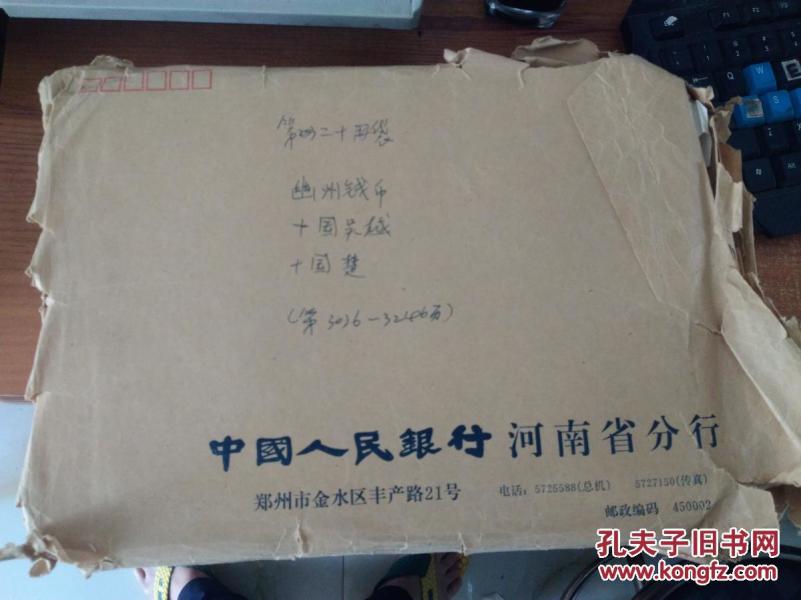 第四二十四袋
幽州钱币
十国吴越
十国楚
(第3036-3246页)
中國人民銀行 河南省分行
郑州市金水区丰产路21号 电话: 5725588(总机) 5727150(传真)
邮政编码 450002
孔夫子旧书网
www.kongfz.com